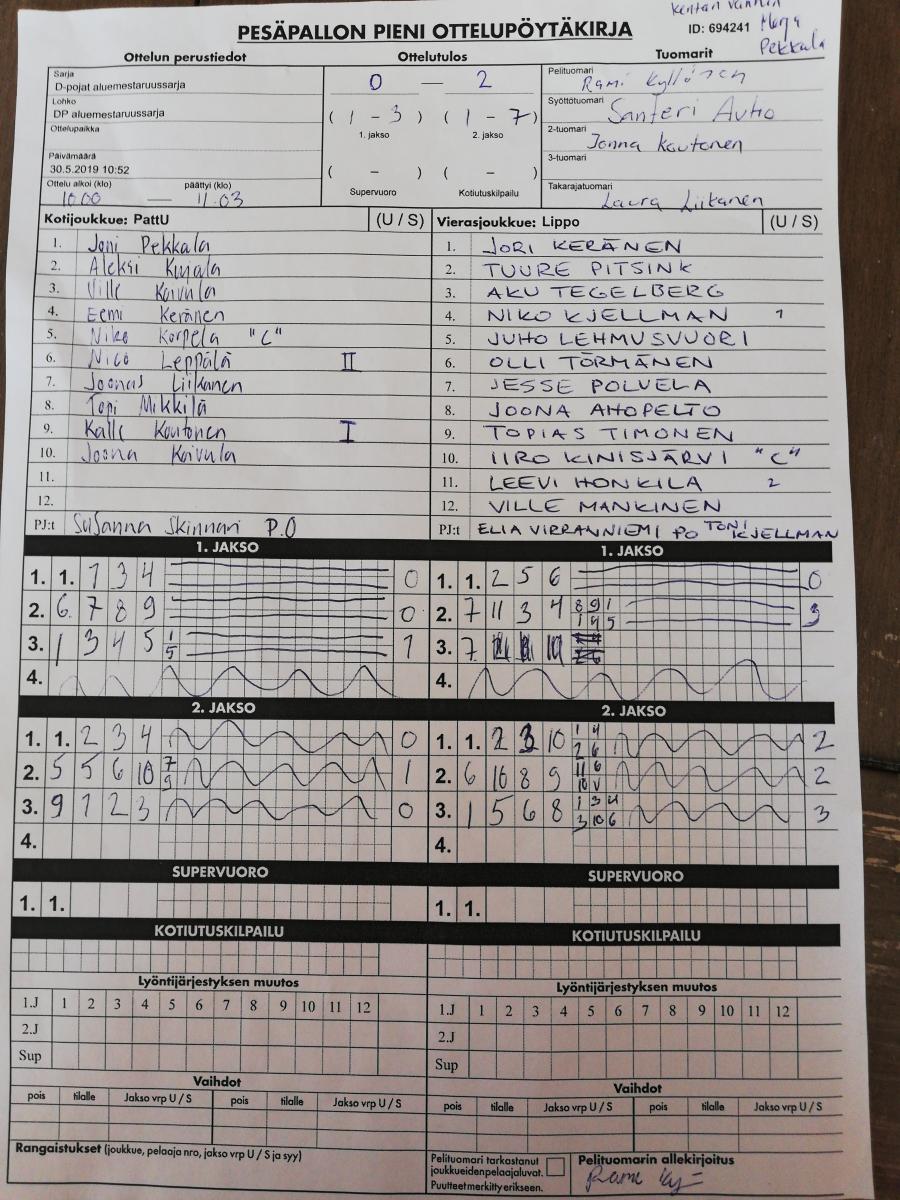 Kentän vaihdin
PESÄPALLON PIENI OTTELUPÖYTÄKIRJA
ID: 694241 Merja
Pekkala
Ottelun perustiedot Ottelutulos Tuomarit
Sarja
D-pojat aluemestaruussarja
Lohko
DP aluemestaruussarja
Ottelupaikka
Päivämäärä
30.5.2019 10:52
Ottelu alkoi (klo) päättyi (klo)
10.00 — 11.03
0 — 2
( 1 - 3 ) ( 1 - 7 )
1. jakso 2. jakso
( - ) ( - )
Supervuoro Kotiutuskilpailu
Pelituomari
Rami Kyllönen
Syöttötuomari
Santeri Autio
2-tuomari
Jonna Koutonen
3-tuomari
Takarajatuomari
Laura Liikanen
Kotijoukkue: PattU (U / S)
1. Joni Pekkala
2. Aleksi Kujala
3. Ville Koivula
4. Eemi Keränen
5. Niko Korpela "C"
6. Nico Leppälä II
7. Joonas Liikanen
8. Topi Mikkilä
9. Kalle Koutonen I
10. Joona Koivula
11.
12.
PJ:t Susanna Skinnari P.O
Vierasjoukkue: Lippo (U / S)
1. JORI KERÄNEN
2. TUURE PITSINK
3. AKU TEGELBERG
4. NIKO KJELLMAN 1
5. JUHO LEHMUSVUORI
6. OLLI TÖRMÄNEN
7. JESSE POLVELA
8. JOONA AHOPELTO
9. TOPIAS TIMONEN
10. IIRO KINISJÄRVI "C"
11. LEEVI HONKILA 2
12. VILLE MANKINEN
PJ:t ELIA VIRRANNIEMI PO TONI KJELLMAN
1. JAKSO
1. 1. 7 3 4 0
2. 6 7 8 9 0
3. 1 3 4 5 1 5 1
4.
1. JAKSO
1. 1. 2 5 6 0
2. 7 11 3 4 8 9 1 3
1 4 5
3. 7
4.
2. JAKSO
1. 1. 2 3 4 0
2. 5 5 6 10 7 9 1
3. 9 1 2 3 0
4.
2. JAKSO
1. 1. 2 3 10 1 4 2
2 6
2. 6 10 8 9 11 6 2
10 V
3. 1 5 6 8 1 3 4 3
3 10 6
4.
SUPERVUORO
1. 1.
SUPERVUORO
1. 1.
KOTIUTUSKILPAILU
KOTIUTUSKILPAILU
Lyöntijärjestyksen muutos
1.J 1 2 3 4 5 6 7 8 9 10 11 12
2.J
Sup
Lyöntijärjestyksen muutos
1.J 1 2 3 4 5 6 7 8 9 10 11 12
2.J
Sup
Vaihdot
pois tilalle Jakso vrp U / S pois tilalle Jakso vrp U / S
Vaihdot
pois tilalle Jakso vrp U / S pois tilalle Jakso vrp U / S
Rangaistukset (joukkue, pelaaja nro, jakso vrp U / S ja syy)
Pelituomari tarkastanut
joukkueidenpelaajaluvat.
Puutteet merkitty erikseen.
Pelituomarin allekirjoitus
Rami Ky